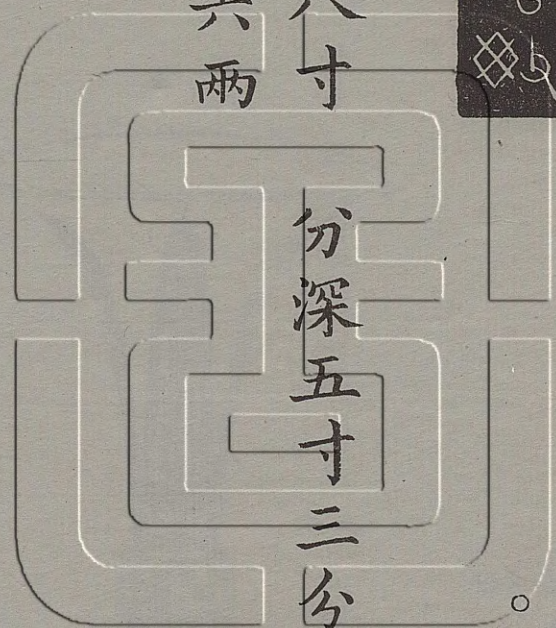 寸 分深五寸三分
六兩